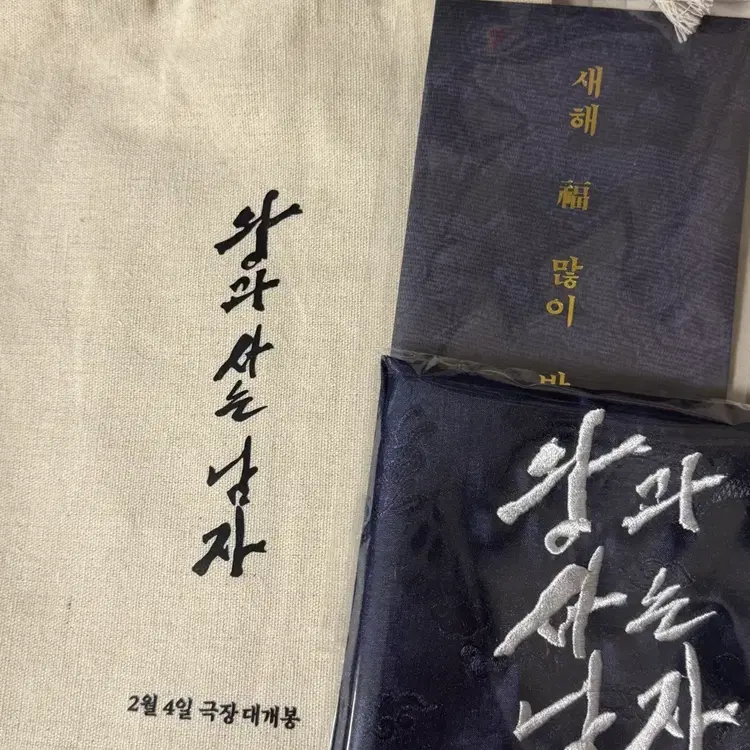 왕과 사는 남자
2월 4일 극장 대개봉
새해
福
많이
왕과
사는
남자